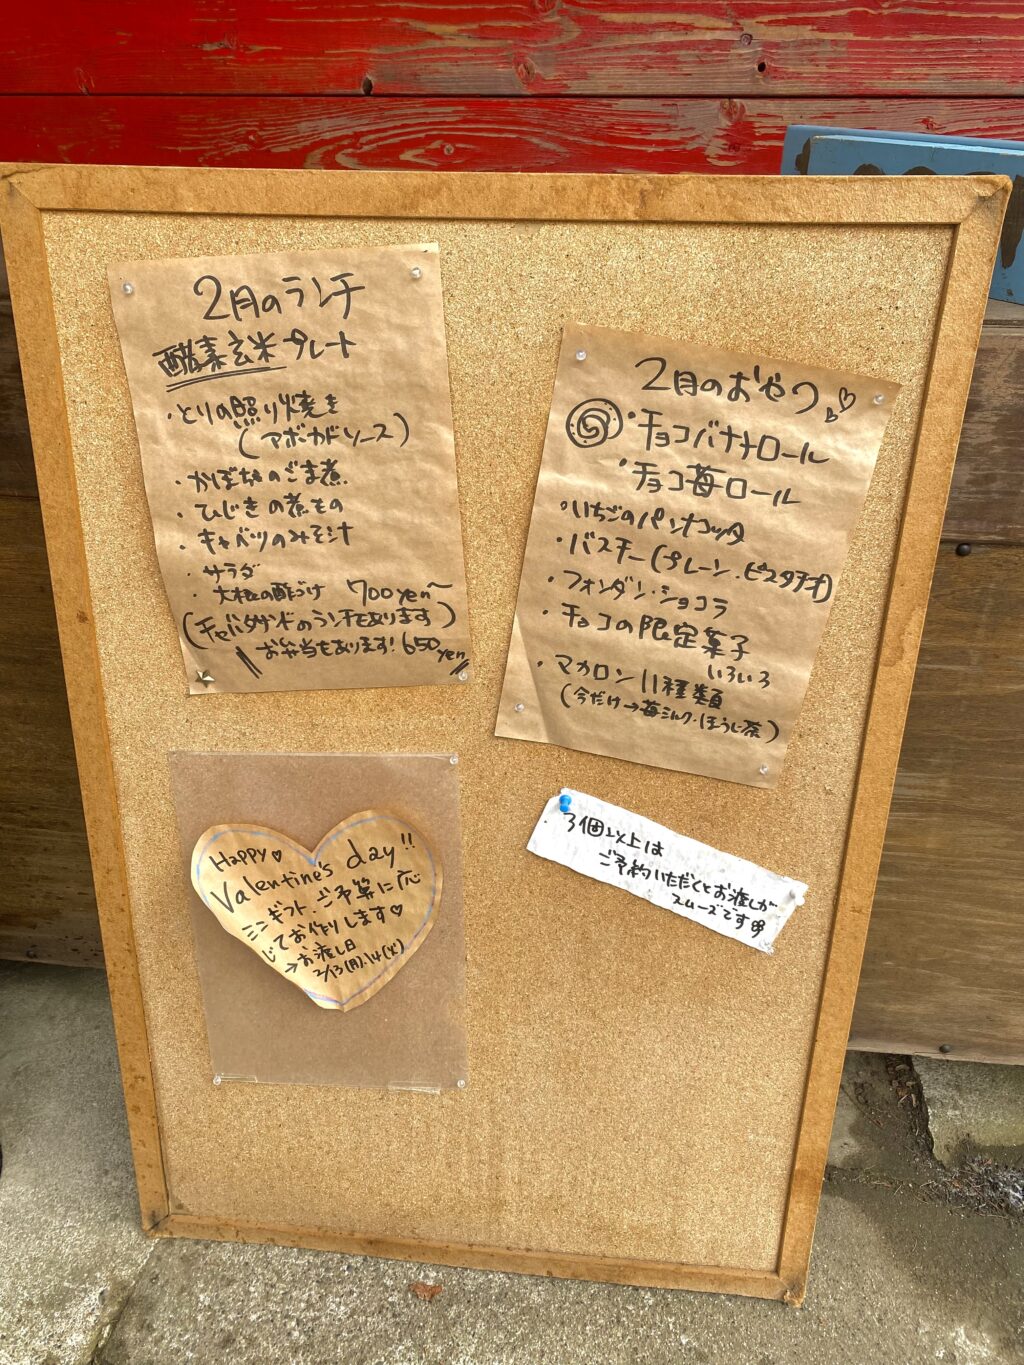 2月のランチ
酵素玄米プレート
・とりの照り焼き
(アボカドソース)
・かぼちゃのごま煮
・ひじきの煮もの
・キャベツのみそ汁
・サラダ
・大根の酢づけ 700yen〜
(チャバタサンドのランチもあります)
お弁当もあります! 650yen
2月のおやつ♡
・チョコバナナロール
・チョコ苺ロール
・いちごのパンナコッタ
・バスチー(プレーン・ピスタチオ)
・フォンダン・ショコラ
・チョコの限定菓子
いろいろ
・マカロン11種類
(今だけ→苺ミルク・ほうじ茶)
Happy♡
Valentine's day!!
ミニギフト、ご予算に応
じてお作りします♡
→お渡し日
2/13(月)・14(火)
3個以上は
ご予約いただくとお渡しが
スムーズです